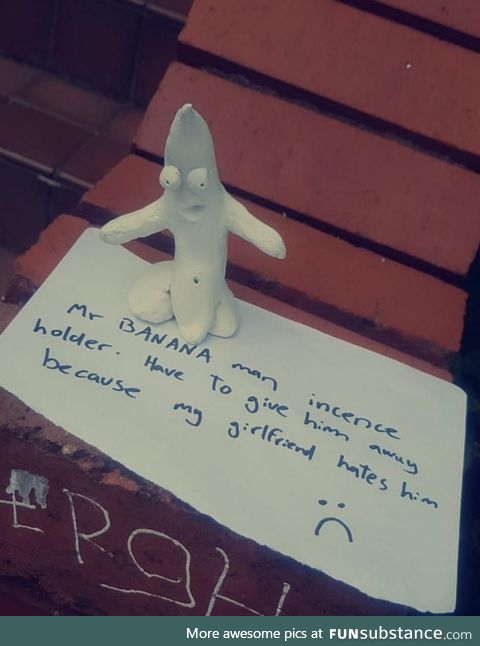 Mr BANANA man incence
holder. Have to give him away
because my girlfriend hates him
EROH
More awesome pics at FUNsubstance.com